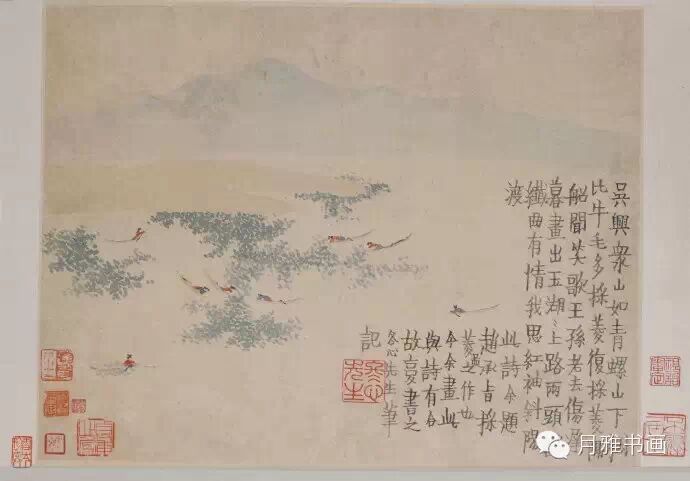 吳興衆山如青螺山下
比牛毛多採菱復採菱
船聞笑歌王孫老去傷
暮畫出玉湖〻上路兩頭
纖曲有情我思紅袖斜陽
渡
此詩余題
趙承旨採
菱圖之作也
今余畫此
與詩有合
故复書之
冬心先生筆
記
冬心先生
月雅书画